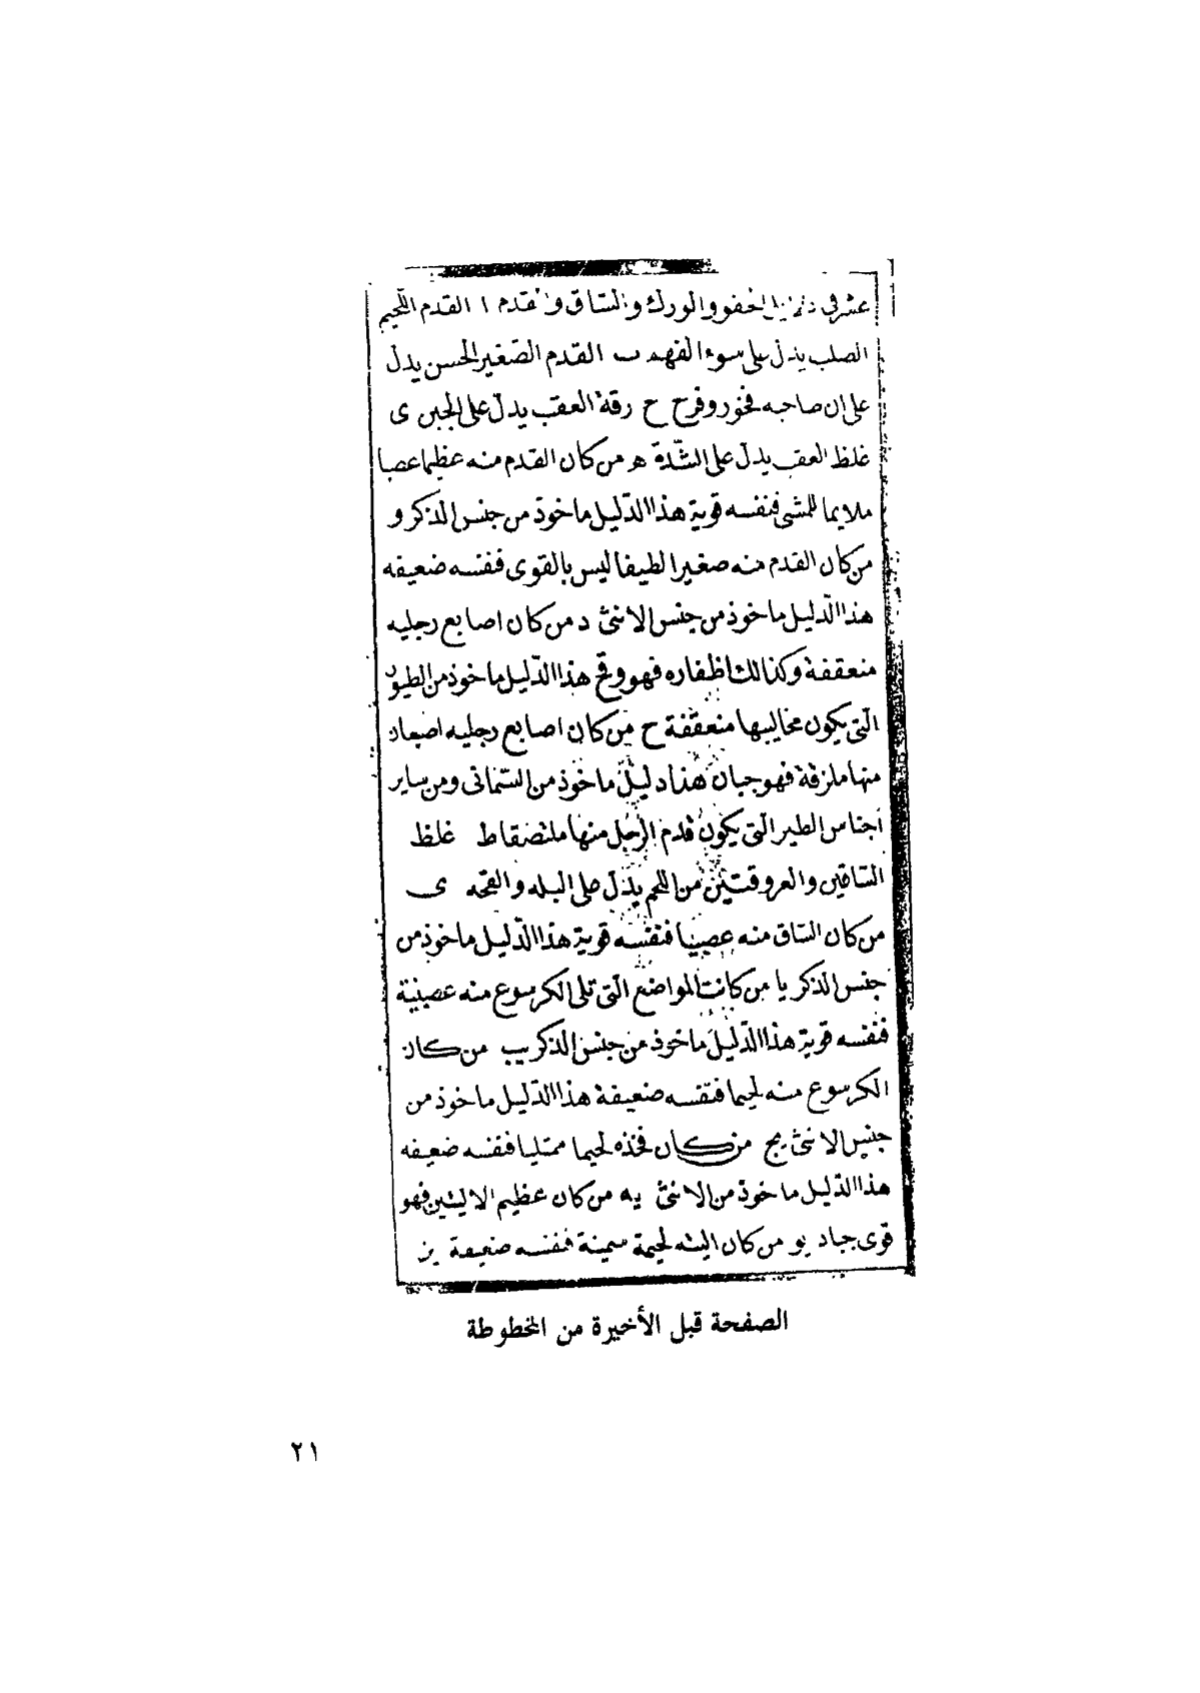 عشر فى دلائل الحقو والورك والساق والقدم ا القدم اللحيم
الصلب يدل على سوء الفهم ب القدم الصغير الحسن يدل
على ان صاحبه فخور وفرح ح رقة العقب يدل على الجبن ى
غلظ العقب يدل على الشّدة ه من كان القدم منه عظيما عصبا
ملايما للمشى فنفسه قوية هذا الدّليل ماخوذ من جنس الذكر و
من كان القدم منه صغيرا لطيفا ليس بالقوى فنفسه ضعيفه
هذا الدّليل ماخوذ من جنس الانثى د من كان اصابع رجليه
منعقفة وكذالك اظفاره فهو وقح هذا الدّليل ماخوذ من الطيور
الّتى يكون مخاليبها منعقفة ح من كان اصابع رجليه
منها ملزقة فهو جبان هذا دليل ماخوذ من السّمانى ومن ساير
أجناس الطير الّتى يكون قدم الرّجل منها ملتصقا ط غلظ
السّاقين والعروقتين من اللحم يدلّ على البله والقحه ى
من كان السّاق منه عصبيا فنفسه قوية هذا الدّليل ماخوذ من
جنس الذكر يا من كانت المواضع الّتى تلى الكرسوع منه عصبنية
فنفسه قوية هذا الدّليل ماخوذ من جنس الذكر يب من كان
الكرسوع منه لحيما فنفسه ضعيفة هذا الدّليل ماخوذ من
جنس الانثى يج من كان فخذه لحيما ممتليا فنفسه ضعيفه
هذا الدّليل ماخوذ من الانثى يه من كان عظيم الاليتين فهو
قوى جباد يو من كان اليته لحيمة سمينة فنفسه ضعيفة يز
الصفحة قبل الأخيرة من المخطوطة
٢١